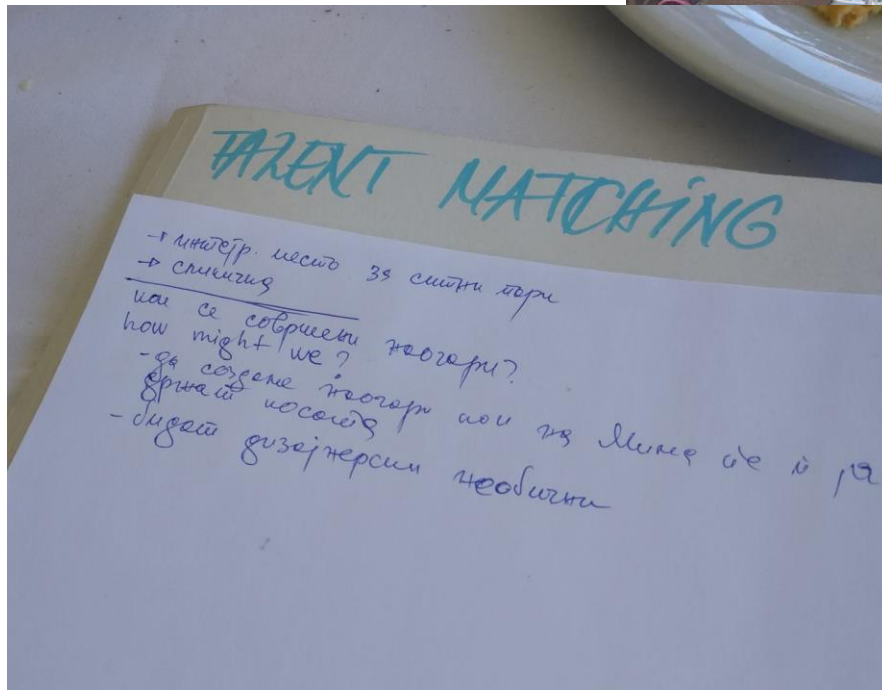 TALENT MATCHING
→ интегр. место за ситни пари
→ спиничка
кои се совршени ноогари?
how might we?
- да создаме ноогари кои на Мина ќе ѝ ја
држат косата
- бидат дизајнерски необични